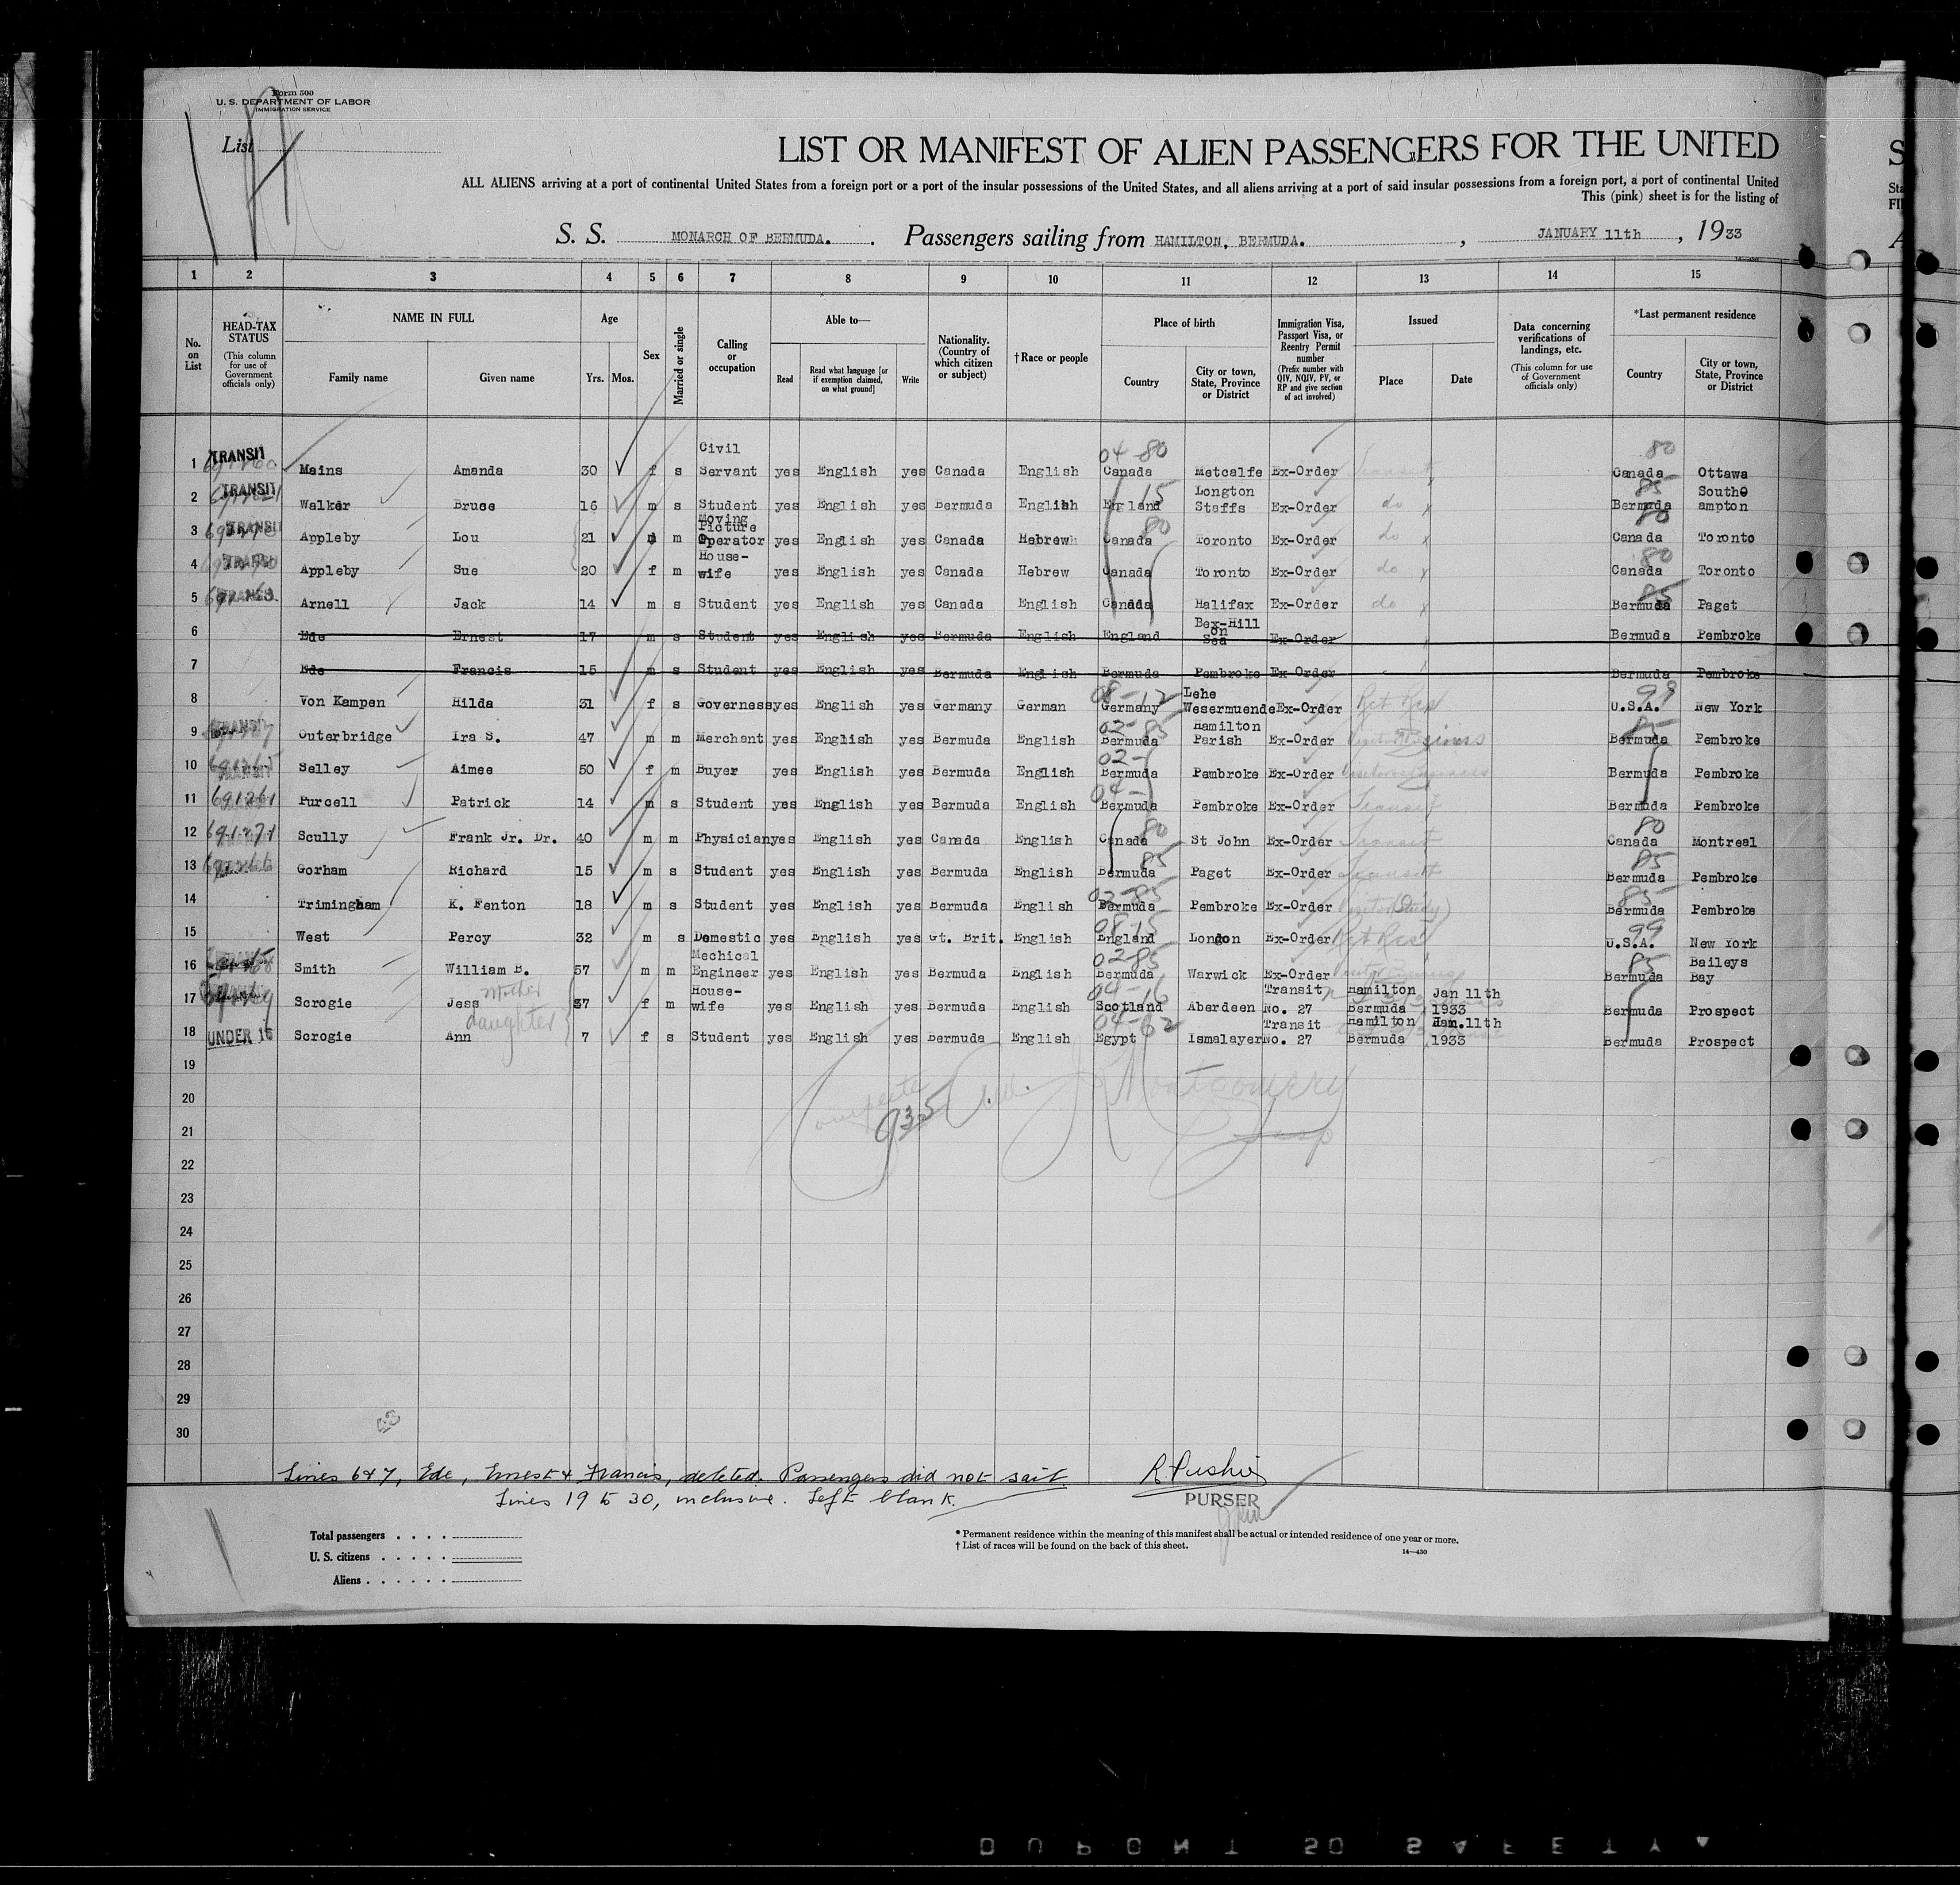 Form 500
U. S. DEPARTMENT OF LABOR
IMMIGRATION SERVICE
List
LIST OR MANIFEST OF ALIEN PASSENGERS FOR THE UNITED
ALL ALIENS arriving at a port of continental United States from a foreign port or a port of the insular possessions of the United States, and all aliens arriving at a port of said insular possessions from a foreign port, a port of continental United
This (pink) sheet is for the listing of
S. S. MONARCH OF BERMUDA. Passengers sailing from HAMILTON, BERMUDA. , JANUARY 11th , 1933
1 2 3 4 5 6 7 8 9 10 11 12 13 14 15
No. on List
HEAD-TAX STATUS (This column for use of Government officials only)
NAME IN FULL Family name Given name
Age Yrs. Mos.
Sex
Married or single
Calling or occupation
Able to— Read Read what language [or if exemption claimed, on what ground] Write
Nationality. (Country of which citizen or subject)
†Race or people
Place of birth Country City or town, State, Province or District
Immigration Visa, Passport Visa, or Reentry Permit number (Prefix number with QIV, NQIV, PV, or RP and give section of act involved)
Issued Place Date
Data concerning verifications of landings, etc. (This column for use of Government officials only)
*Last permanent residence Country City or town, State, Province or District
1 TRANSIT Mains Amanda 30 f s Civil Servant yes English yes Canada English 04-80 Canada Metcalfe Ex-Order Transit 80 Canada Ottawa
2 TRANSIT Walker Bruce 16 m s Student yes English yes Bermuda English 15 England Longton Staffs Ex-Order do 85 Bermuda South ampton
3 TRANSIT Appleby Lou 21 m m Moving Picture Operator yes English yes Canada Hebrew 80 Canada Toronto Ex-Order do 80 Canada Toronto
4 TRANSIT Appleby Sue 20 f m House-wife yes English yes Canada Hebrew Canada Toronto Ex-Order do 80 Canada Toronto
5 TRANSIT Arnell Jack 14 m s Student yes English yes Canada English Canada Halifax Ex-Order do 85 Bermuda Paget
6 Ede Ernest 17 m s Student yes English yes Bermuda English England Bex-Hill on Sea Ex-Order Bermuda Pembroke
7 Ede Francis 15 m s Student yes English yes Bermuda English Bermuda Pembroke Ex-Order Bermuda Pembroke
8 Von Kampen Hilda 31 f s Governess yes English yes Germany German 08-12 Germany Lehe Wesermuende Ex-Order Ret Res 99 U.S.A. New York
9 TRANSIT Outerbridge Ira S. 47 m m Merchant yes English yes Bermuda English 02-85 Bermuda Hamilton Parish Ex-Order 85 Bermuda Pembroke
10 Selley Aimee 50 f m Buyer yes English yes Bermuda English 02- Bermuda Pembroke Ex-Order Bermuda Pembroke
11 691261 Purcell Patrick 14 m s Student yes English yes Bermuda English 04- Bermuda Pembroke Ex-Order Transit Bermuda Pembroke
12 691271 Scully Frank Jr. Dr. 40 m m Physician yes English yes Canada English 80 Canada St John Ex-Order Transit 80 Canada Montreal
13 691266 Gorham Richard 15 m s Student yes English yes Bermuda English 85 Bermuda Paget Ex-Order Transit 85 Bermuda Pembroke
14 Trimingham K. Fenton 18 m s Student yes English yes Bermuda English 02-85 Bermuda Pembroke Ex-Order Visitor (Study) 85 Bermuda Pembroke
15 West Percy 32 m s Domestic yes English yes Gt. Brit. English 08-15 England London Ex-Order Ret Res 99 U.S.A. New York
16 Smith William B. 57 m m Mechical Engineer yes English yes Bermuda English 02-85 Bermuda Warwick Ex-Order 85 Bermuda Baileys Bay
17 Scrogie Jess mother 37 f m House-wife yes English yes Bermuda English 04-16 Scotland Aberdeen Transit No. 27 Hamilton Bermuda Jan 11th 1933 Bermuda Prospect
18 UNDER 16 Scrogie Ann daughter 7 f s Student yes English yes Bermuda English 04-62 Egypt Ismalayer Transit No. 27 Hamilton Bermuda Jan.11th 1933 Bermuda Prospect
19
20
935 Montgomery
21
22
23
24
25
26
27
28
29
30
Lines 6 & 7, Ede, Ernest & Francis, deleted. Passengers did not sail
Lines 19 to 30, inclusive. Left blank.
PURSER
Total passengers . . . .
U. S. citizens . . . . .
Aliens . . . . . .
* Permanent residence within the meaning of this manifest shall be actual or intended residence of one year or more.
† List of races will be found on the back of this sheet.
14—430
DUPONT 50 SAFETY